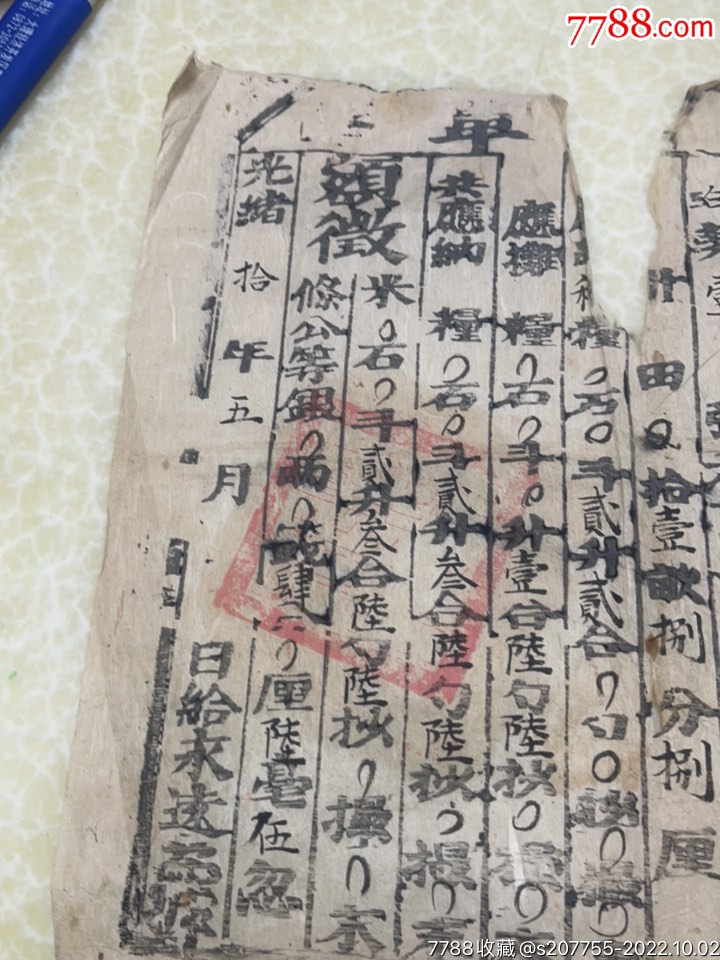 7788.com
年
治
壹
田〇拾壹畝捌分捌厘
糧〇石〇斗貳升貳合〇勺〇
應攤糧〇石〇斗〇升壹合陸勺陸抄〇
共應納糧〇石〇斗貳升叁合陸勺陸抄〇
額徵
米〇石〇斗貳升叁合陸勺陸抄〇撮〇
條公等銀〇兩〇錢肆分〇厘陸毫伍忽
光緒拾年五月
日給永遠為據
7788收藏@s207755-2022.10.02